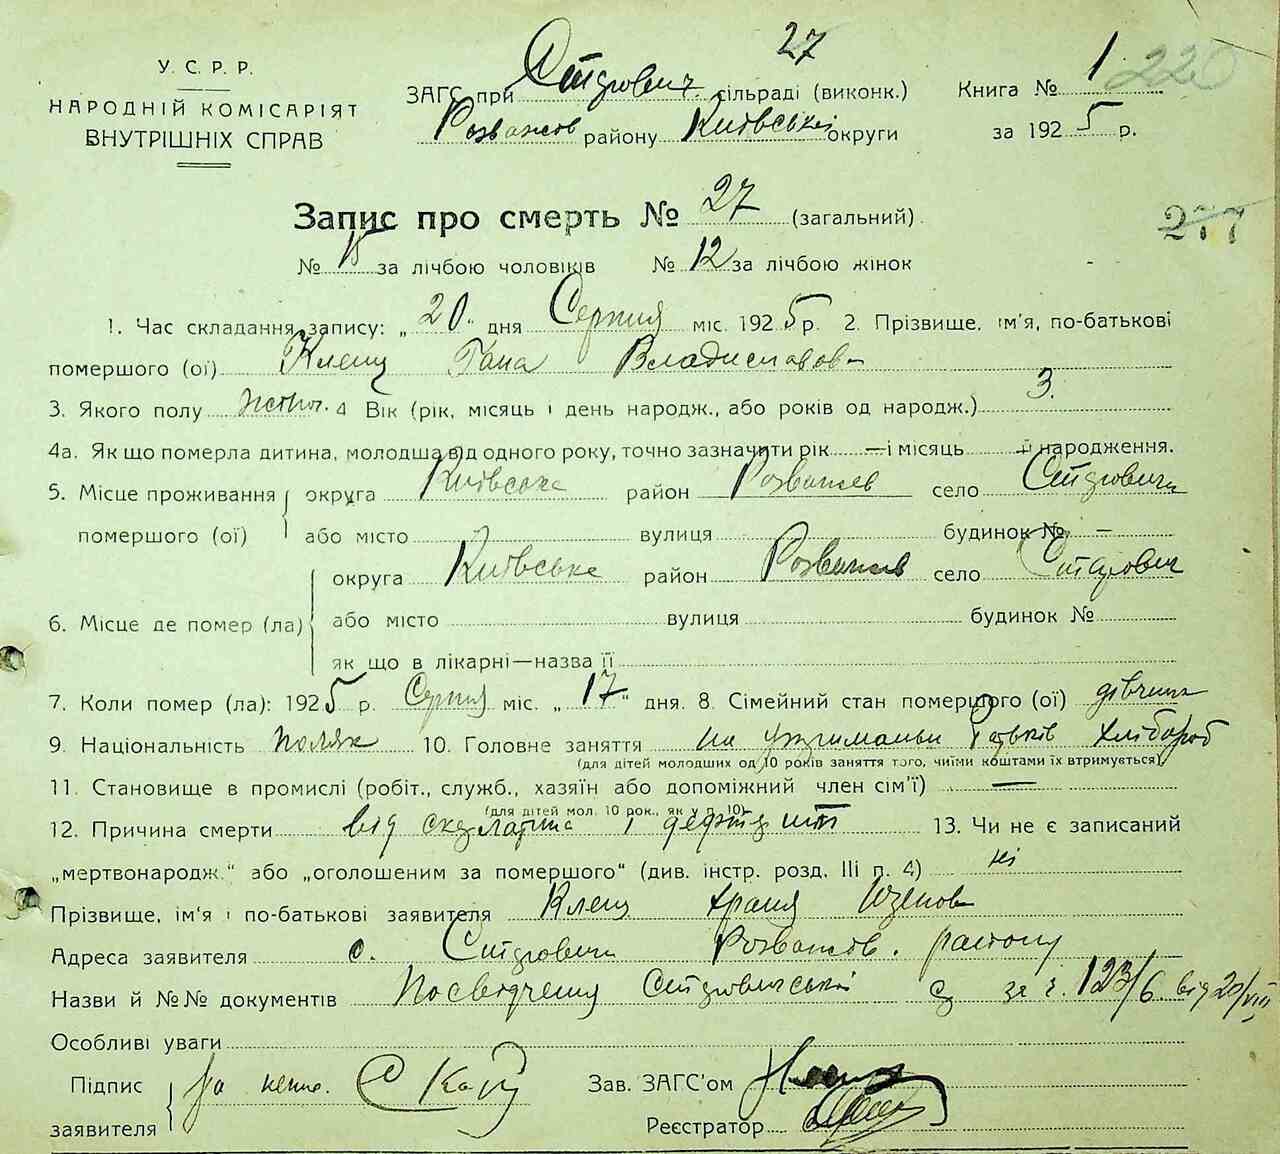 27
У. С. Р. Р.
НАРОДНІЙ КОМІСАРІЯТ
ВНУТРІШНІХ СПРАВ
ЗАГС при сільраді (виконк.) Книга № 1 220
Розважов району Київської округи за 1925 р.
Запис про смерть № 27 (загальний).
277
№ 15 за лічбою чоловіків № 12 за лічбою жінок
1. Час складання запису: „20" дня Серпня міс. 1925 р. 2. Прізвище, ім'я, по-батькові
помершого (ої) Клещ Гана Владиславовн
3. Якого полу 4 Вік (рік, місяць і день народж., або років од народж.) 3.
4а. Як що померла дитина, молодша від одного року, точно зазначити рік — і місяць й народження.
5. Місце проживання округа Київська район Розважев село
помершого (ої) або місто вулиця будинок № —
округа Київська район Розважев село
6. Місце де помер (ла) або місто вулиця будинок №
як що в лікарні—назва її
7. Коли помер (ла): 1925 р. Серпня міс. „17" дня. 8. Сімейний стан помершого (ої) дівчина
9. Національність поляк 10. Головне заняття на утриманьи батьків хлібороб
(для дітей молодших од 10 років заняття того, чиїми коштами їх втримується)
11. Становище в промислі (робіт., служб., хазяїн або допоміжний член сім'ї) —
(для дітей мол. 10 рок., як у п. 10)
12. Причина смерти від скарлатина і 13. Чи не є записаний
„мертвонародж." або „оголошеним за помершого" (див. інстр. розд. III п. 4) ні
Прізвище, ім'я і по-батькові заявителя Клещ Юзефов
Адреса заявителя с. Розважов. району
Назви й №№ документів Посвідчення за ч. 123/6. від 20/VIII
Особливі уваги
Підпис за Зав. ЗАГС'ом
заявителя Реєстратор